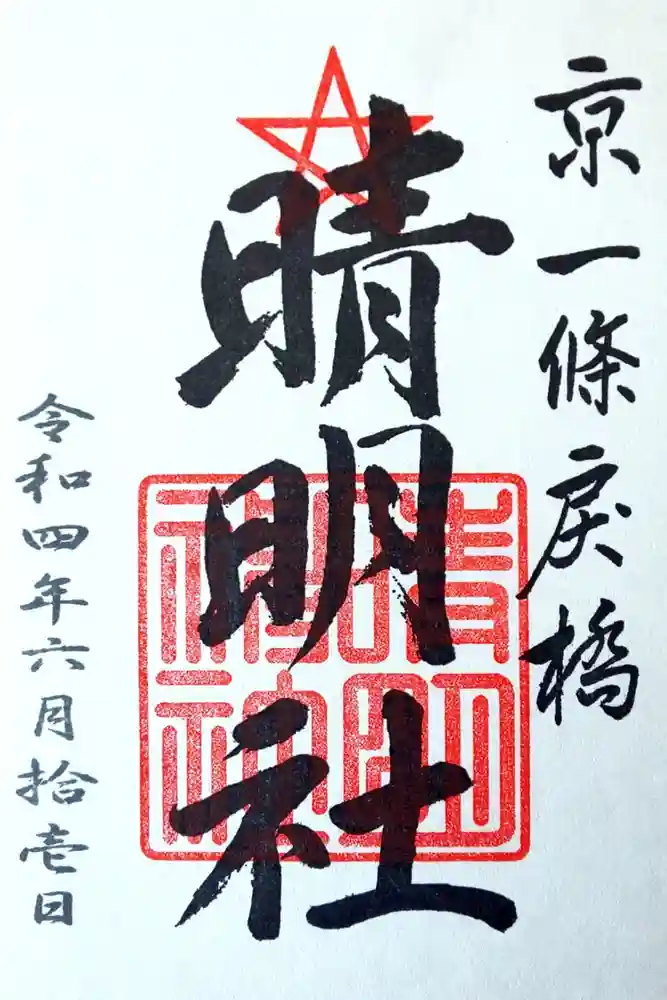 京一條戻橋
晴明社
令和四年六月拾壱日